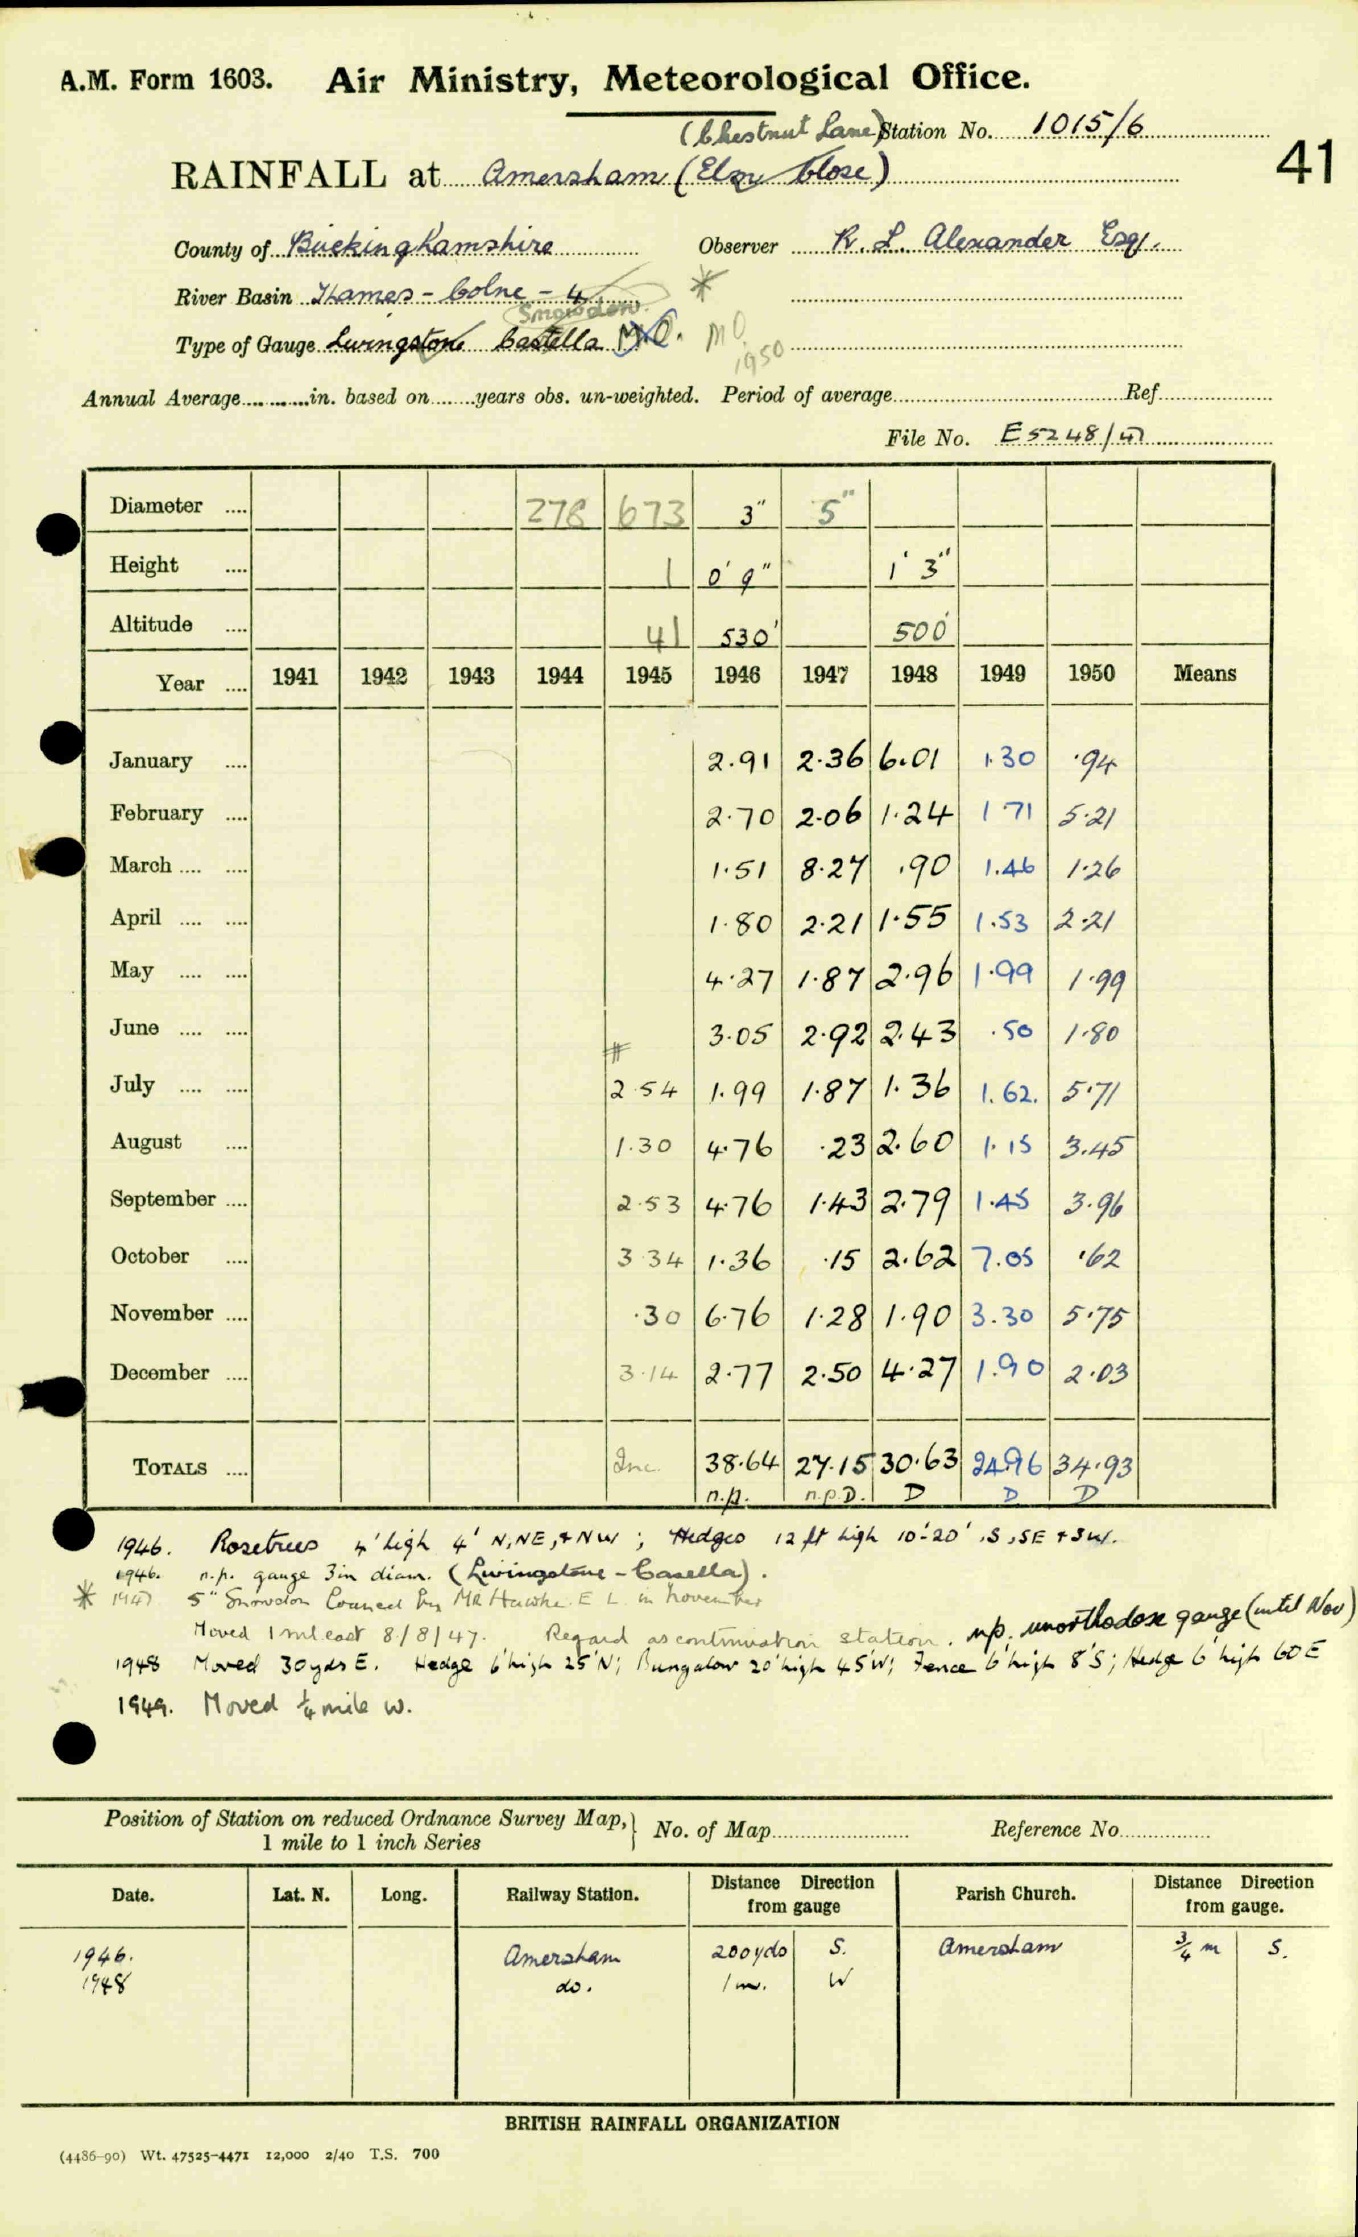 A.M. Form 1603. Air Ministry, Meteorological Office.
(Chestnut Lane) Station No. 1015/6
41
RAINFALL at Amersham (Elm Close)
County of Buckinghamshire Observer R. L. Alexander Esq.
River Basin Thames - Colne - 4 *
Snowdon.
Type of Gauge Livingstone Casella M.O. MO 1950
Annual Average in. based on years obs. un-weighted. Period of average Ref
File No. E5248/47
Diameter 278 673 3" 5"
Height 1 0' 9" 1' 3"
Altitude 41 530' 500'
Year 1941 1942 1943 1944 1945 1946 1947 1948 1949 1950 Means
January 2.91 2.36 6.01 1.30 .94
February 2.70 2.06 1.24 1.71 5.21
March 1.51 8.27 .90 1.46 1.26
April 1.80 2.21 1.55 1.53 2.21
May 4.27 1.87 2.96 1.99 1.99
June # 3.05 2.92 2.43 .50 1.80
July 2.54 1.99 1.87 1.36 1.62. 5.71
August 1.30 4.76 .23 2.60 1.15 3.45
September 2.53 4.76 1.43 2.79 1.45 3.96
October 3.34 1.36 .15 2.62 7.05 .62
November .30 6.76 1.28 1.90 3.30 5.75
December 3.14 2.77 2.50 4.27 1.90 2.03
TOTALS Inc. 38.64 27.15 30.63 24.96 34.93
n.p. n.p.D. D D D
1946. Rosetrees 4' high 4' N, NE, + NW ; Hedges 12 ft high 10'-20' S, SE + SW.
1946. n.p. gauge 3in diam. (Livingstone - Casella).
* 1947 5" Snowdon Loaned by Mr Hawke E L in November
Moved 1 ml. east 8/8/47. Regard as continuation station. n/p. unorthodox gauge (until Nov)
1948 Moved 30 yds E. Hedge 6' high 25' N; Bungalow 20' high 45' W; Fence 6' high 8' S; Hedge 6' high 60 E
1949. Moved ¼ mile W.
Position of Station on reduced Ordnance Survey Map, 1 mile to 1 inch Series } No. of Map Reference No
Date. Lat. N. Long. Railway Station. Distance Direction from gauge Parish Church. Distance Direction from gauge.
1946. Amersham 200 yds S. Amersham ¾ m S.
1948 do. 1 m. W
BRITISH RAINFALL ORGANIZATION
(4486-90) Wt. 47525-4471 12,000 2/40 T.S. 700